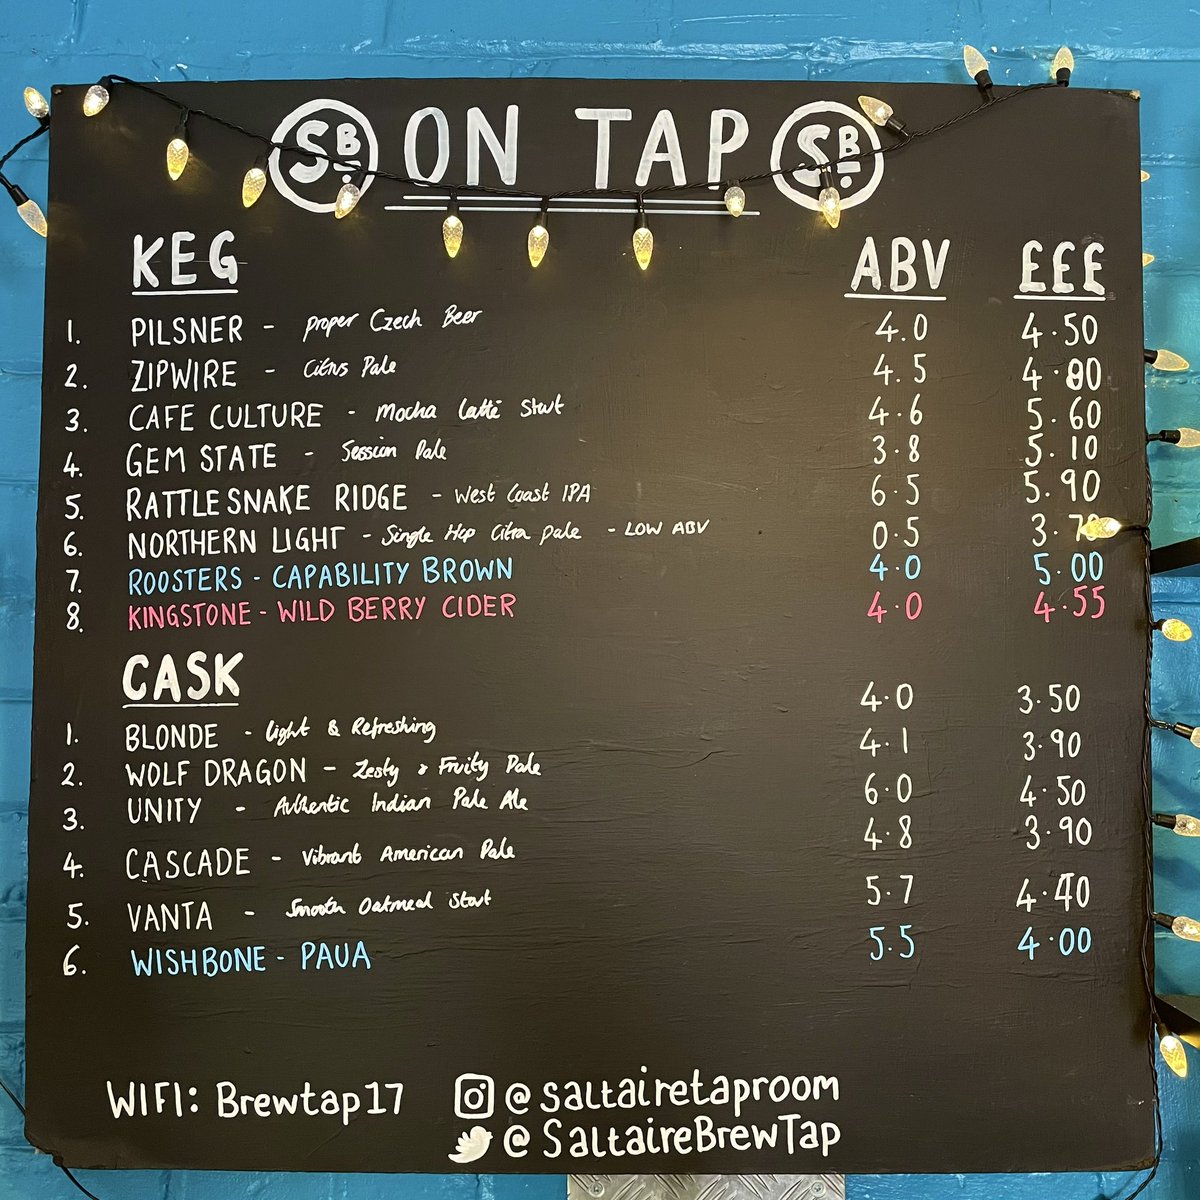 SB. ON TAP SB.
KEG ABV £££
1. PILSNER - Proper Czech Beer 4.0 4.50
2. ZIPWIRE - Citrus Pale 4.5 4.80
3. CAFE CULTURE - Mocha Latté Stout 4.6 5.60
4. GEM STATE - Session Pale 3.8 5.10
5. RATTLESNAKE RIDGE - West Coast IPA 6.5 5.90
6. NORTHERN LIGHT - Single Hop Citra Pale - LOW ABV 0.5 3.70
7. ROOSTERS - CAPABILITY BROWN 4.0 5.00
8. KINGSTONE - WILD BERRY CIDER 4.0 4.55
CASK
1. BLONDE - Light & Refreshing 4.0 3.50
2. WOLF DRAGON - Zesty & Fruity Pale 4.1 3.90
3. UNITY - Authentic Indian Pale Ale 6.0 4.50
4. CASCADE - Vibrant American Pale 4.8 3.90
5. VANTA - Smooth Oatmeal Stout 5.7 4.40
6. WISHBONE - PAUA 5.5 4.00
WIFI: Brewtap17 @saltairetaproom
@SaltaireBrewTap